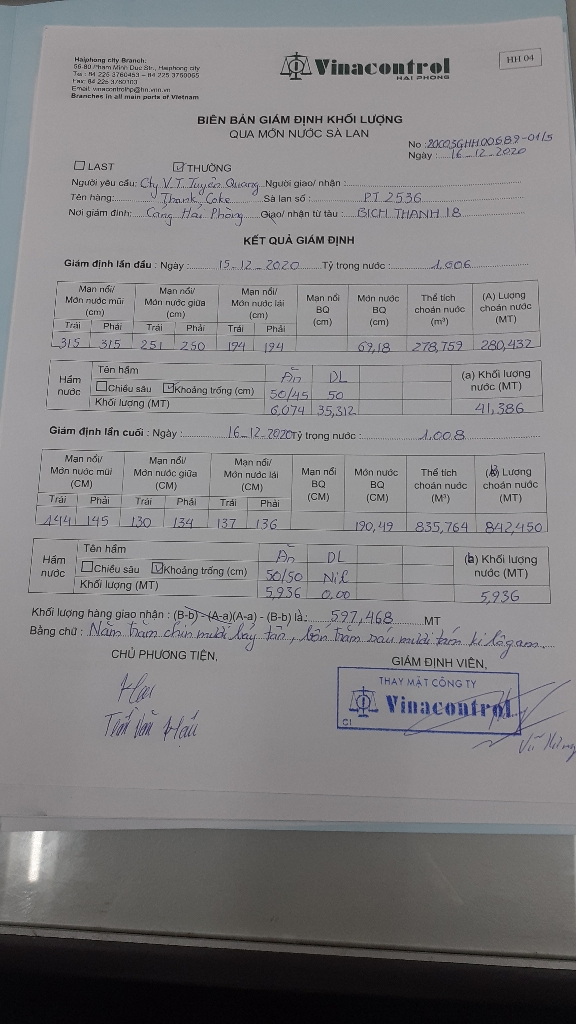 Haiphong city Branch:
56-80 Pham Minh Duc Str., Haiphong city
Tel : 84 225 3760453 – 84 225 3760065
Fax: 84 225 3760103
Email: vinacontrolhp@hn.vnn.vn
Branches in all main ports of Vietnam
Vinacontrol
HAI PHONG
HH 04
BIÊN BẢN GIÁM ĐỊNH KHỐI LƯỢNG
QUA MÓN NƯỚC SÀ LAN
No :20C03GHH00689-01/5
Ngày : 16-12-2020
LAST THƯỜNG
Người yêu cầu: Cty V.T. Tuyên Quang Người giao/ nhận :
Tên hàng: Thank Coke Sà lan số : PT 2536
Nơi giám định: Cảng Hải Phòng Giao/ nhận từ tàu : BICH THANH 18
KẾT QUẢ GIÁM ĐỊNH
Giám định lần đầu : Ngày : 15-12-2020 Tỷ trọng nước : 1.006
Mạn nổi/ Món nước mũi (cm) Mạn nổi/ Món nước giữa (cm) Mạn nổi/ Món nước lái (cm) Mạn nổi BQ (cm) Món nước BQ (cm) Thể tích choán nước (m³) (A) Lượng choán nước (MT)
Trái Phải Trái Phải Trái Phải
315 315 251 250 194 194 69,18 278,759 280,432
Hầm nước Tên hầm Ăn DL (a) Khối lượng nước (MT)
Chiều sâu Khoảng trống (cm) 50/45 50
Khối lượng (MT) 6,074 35,312 41,386
Giám định lần cuối : Ngày : 16-12-2020 Tỷ trọng nước : 1.008
Mạn nổi/ Món nước mũi (CM) Mạn nổi/ Món nước giữa (CM) Mạn nổi/ Món nước lái (CM) Mạn nổi BQ (CM) Món nước BQ (CM) Thể tích choán nước (M³) (B) Lượng choán nước (MT)
Trái Phải Trái Phải Trái Phải
144 145 130 134 137 136 190,49 835,764 842,450
Hầm nước Tên hầm Ăn DL (b) Khối lượng nước (MT)
Chiều sâu Khoảng trống (cm) 50/50 Nil
Khối lượng (MT) 5,936 0.00 5,936
Khối lượng hàng giao nhận : (B-b) - (A-a)(A-a) - (B-b) là: 597,468 MT
Bằng chữ : Năm trăm chín mươi bảy tấn, bốn trăm sáu mươi tám ki lô gam.
CHỦ PHƯƠNG TIỆN, GIÁM ĐỊNH VIÊN,
THAY MẶT CÔNG TY
Vinacontrol
C1